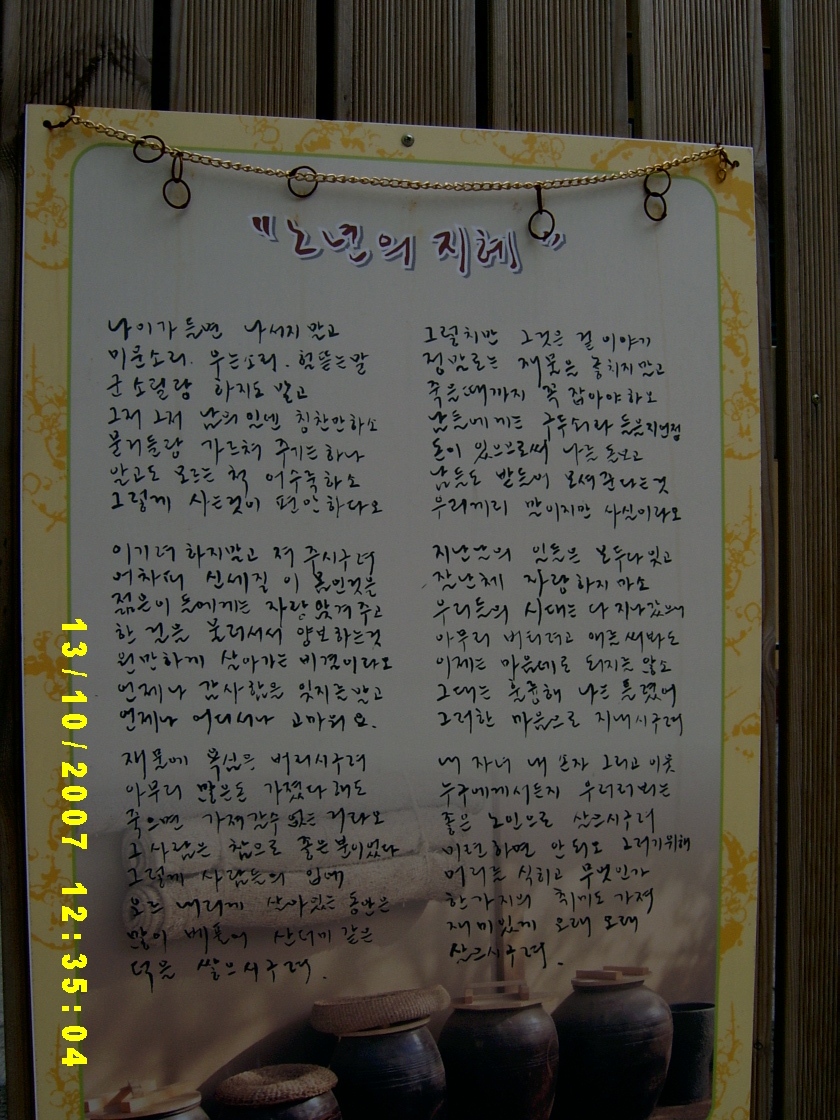 "노년의 지혜"
나이가 들면 나서지 말고
미운소리. 우는소리. 헐뜯는말
군 소릴랑 하지도 말고
그저 그저 남의 일엔 칭찬만하소
묻거들랑 가르쳐 주기는 하나
알고도 모르는 척 어수룩하소
그렇게 사는것이 편안하다오
이기려 하지말고 져 주시구려
어차피 신세질 이 몸인것을
젊은이 들에게는 자랑 앞겨주고
한 걸음 물러서서 양보하는것
원만하게 살아가는 비결이라오
언제나 감사함을 잊지를말고
언제나 어디서나 고마워 요.
재물에 욕심은 버리시구려
아무리 많은돈 가졌다 해도
죽으면 가져갈수 없는 거라오
그 사람은 참으로 좋은 분이었다
그렇게 사람들의 입에
오르 내리게 살아있는 동안은
많이 베풀어 산더미 같은
덕을 쌓으시구려.
그렇치만 그것은 겉 이야기
정말로는 재물을 놓치지말고
죽을때까지 꼭 잡아야 하오
남들에게는 구두쇠라 들을지언정
돈이 있으므로써 나를 돌보고
남들도 받들어 모셔 준다는것
우리끼리 말이지만 사실이라오
지난날의 일들은 모두다 잊고
잘난체 자랑하지 마소
우리들의 시대는 다 지나갔으니
아무리 버티려고 애를 써봐도
이제는 마음데로 되지를 않소
그대는 훌륭해 나는 틀렸어
그러한 마음으로 지내시구려
내 자녀 내 손자 그리고 이웃
누구에게서든지 우러러뵈는
좋은 노인으로 살으시구려
미련하면 안되오 그러기위해
머리를 식히고 무엇인가
한가지의 취미도 가져
재미있게 오래 오래
살으시구려.
13/10/2007 12:35:04